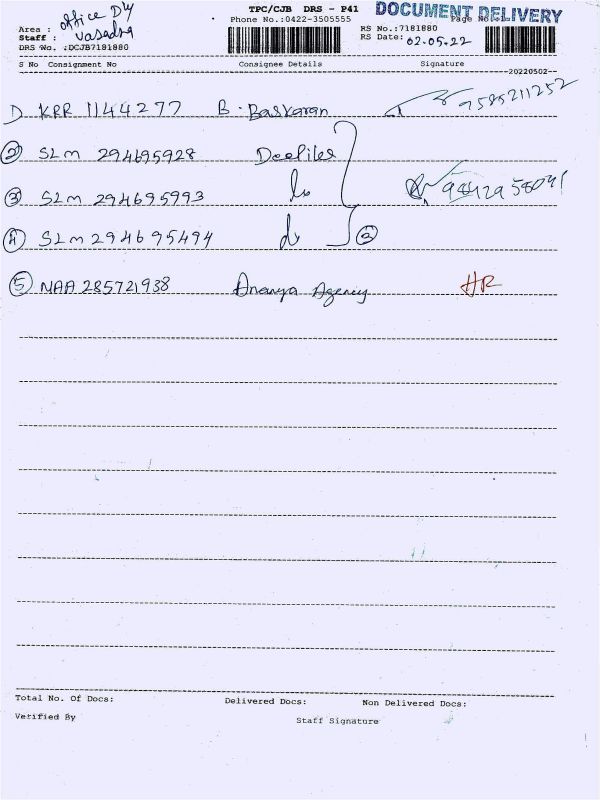 TPC/CJB DRS - P41
DOCUMENT DELIVERY
Area : office Dly
Phone No.:0422-3505555
Page No
Staff : Vasudha
RS No.:7181880
DRS No. :DCJB7181880
RS Date: 02.05.22
S No Consignment No Consignee Details Signature
--20220502--
1) KRR 1144277 B. Baskaran 9585211252
② SLM 294695928 Deepiles
③ SLM 294695993 do 9842958041
④ SLM 294695494 do ③
⑤ NAA 285721938 Ananya Agency HR
Total No. Of Docs: Delivered Docs: Non Delivered Docs:
Verified By Staff Signature